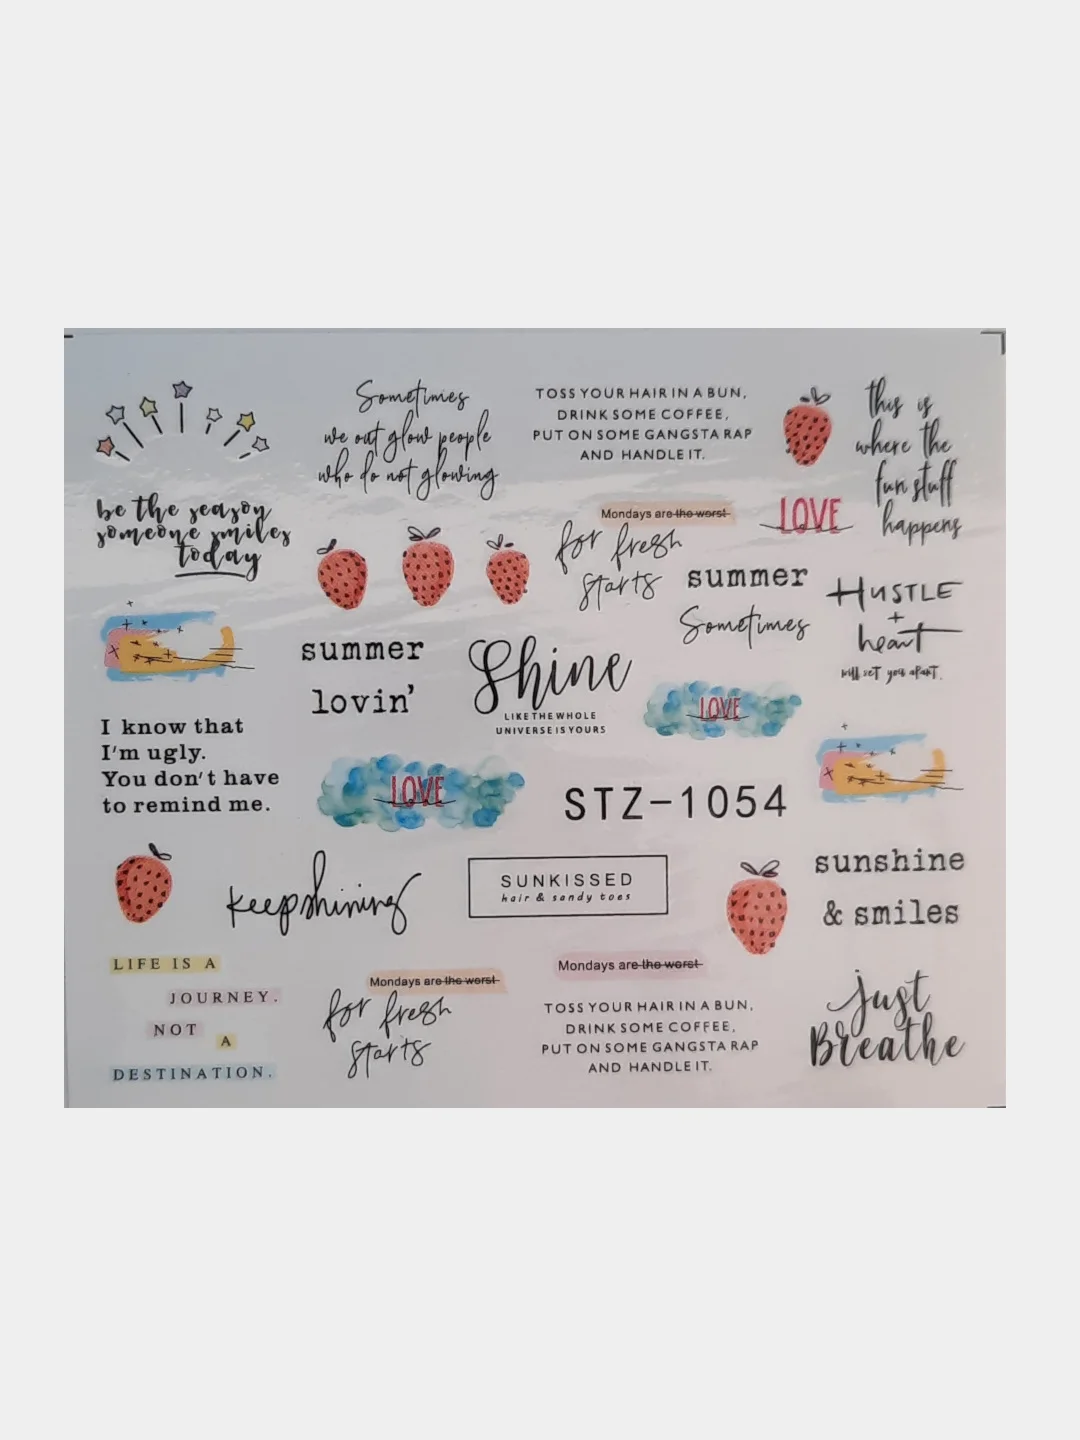 Sometimes
we out glow people
who do not glowing
TOSS YOUR HAIR IN A BUN,
DRINK SOME COFFEE,
PUT ON SOME GANGSTA RAP
AND HANDLE IT.
this is
where the
fun stuff
happens
be the season
someone smiles
today
Mondays are the worst
for fresh
starts
LOVE
summer
Sometimes
HUSTLE
+
heart
will set you apart.
summer
lovin'
Shine
LIKE THE WHOLE
UNIVERSE IS YOURS
LOVE
I know that
I'm ugly.
You don't have
to remind me.
LOVE
STZ-1054
keep shining
SUNKISSED
hair & sandy toes
sunshine
& smiles
LIFE IS A
JOURNEY.
NOT
A
DESTINATION.
Mondays are the worst
for fresh
starts
Mondays are the worst
TOSS YOUR HAIR IN A BUN,
DRINK SOME COFFEE,
PUT ON SOME GANGSTA RAP
AND HANDLE IT.
just
Breathe